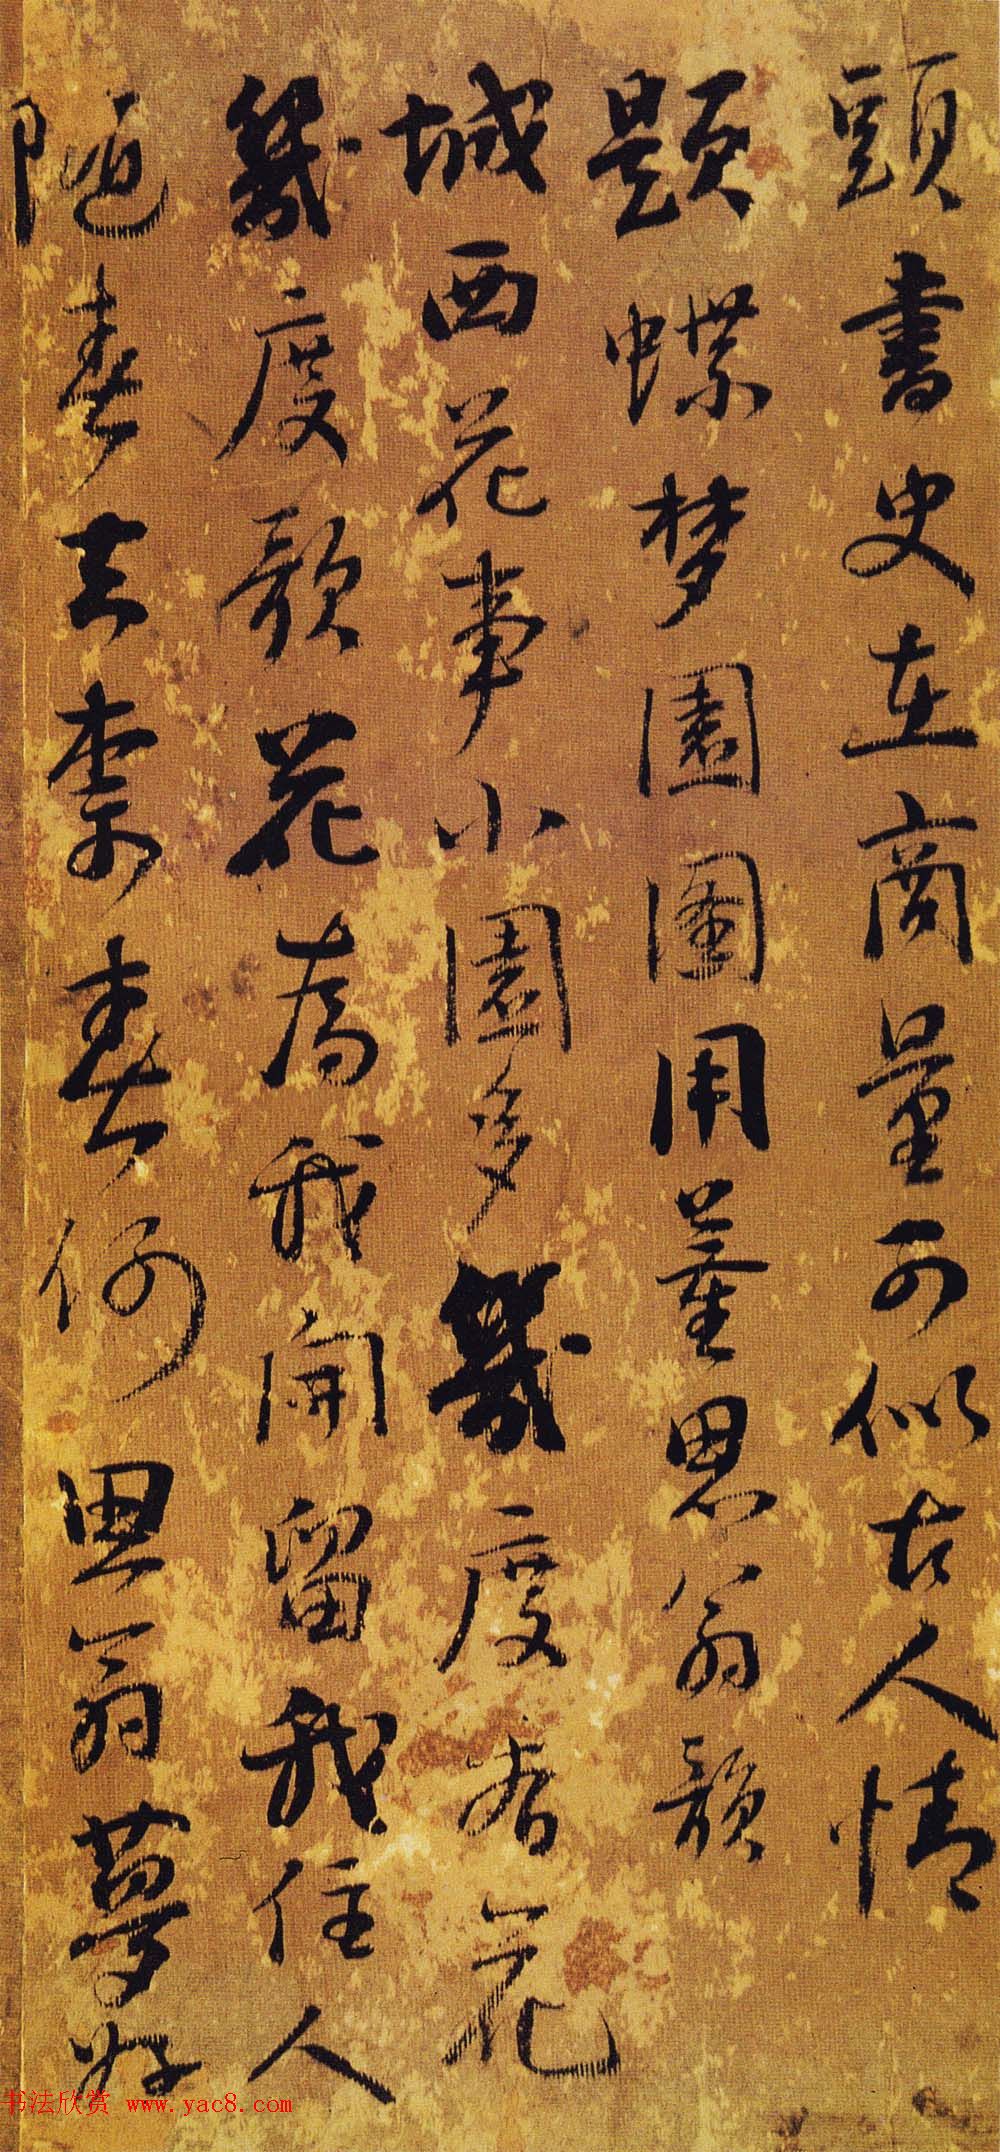 頭書史在商量可似古人情
題蝶梦園圖用董思翁韻
城西花事小園多幾度看花
幾度歌花為我開留我住人
隨春去奈春何思翁夢好
书法欣赏 www.yac8.com